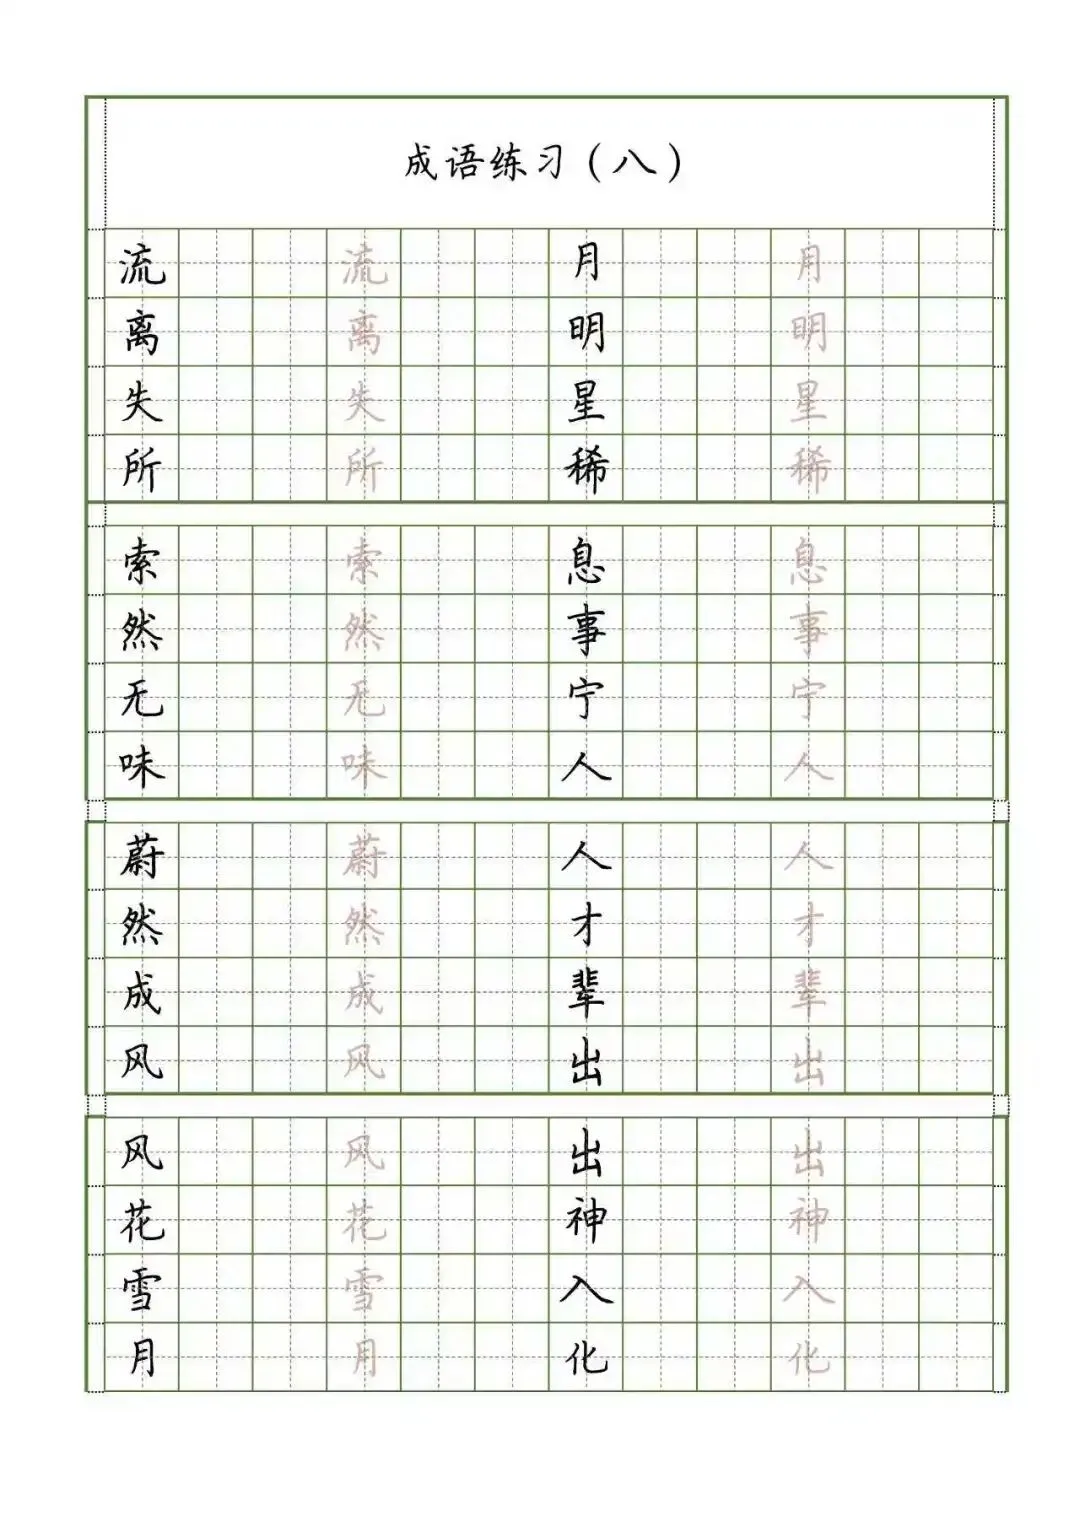 成语练习（八）
流 流 月 月
离 离 明 明
失 失 星 星
所 所 稀 稀
索 索 息 息
然 然 事 事
无 无 宁 宁
味 味 人 人
蔚 蔚 人 人
然 然 才 才
成 成 辈 辈
风 风 出 出
风 风 出 出
花 花 神 神
雪 雪 入 入
月 月 化 化